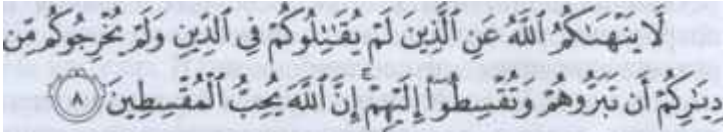 لَّا يَنْهَىٰكُمُ ٱللَّهُ عَنِ ٱلَّذِينَ لَمْ يُقَٰتِلُوكُمْ فِى ٱلدِّينِ وَلَمْ يُخْرِجُوكُم مِّن
دِيَٰرِكُمْ أَن تَبَرُّوهُمْ وَتُقْسِطُوٓا۟ إِلَيْهِمْ ۚ إِنَّ ٱللَّهَ يُحِبُّ ٱلْمُقْسِطِينَ ٨